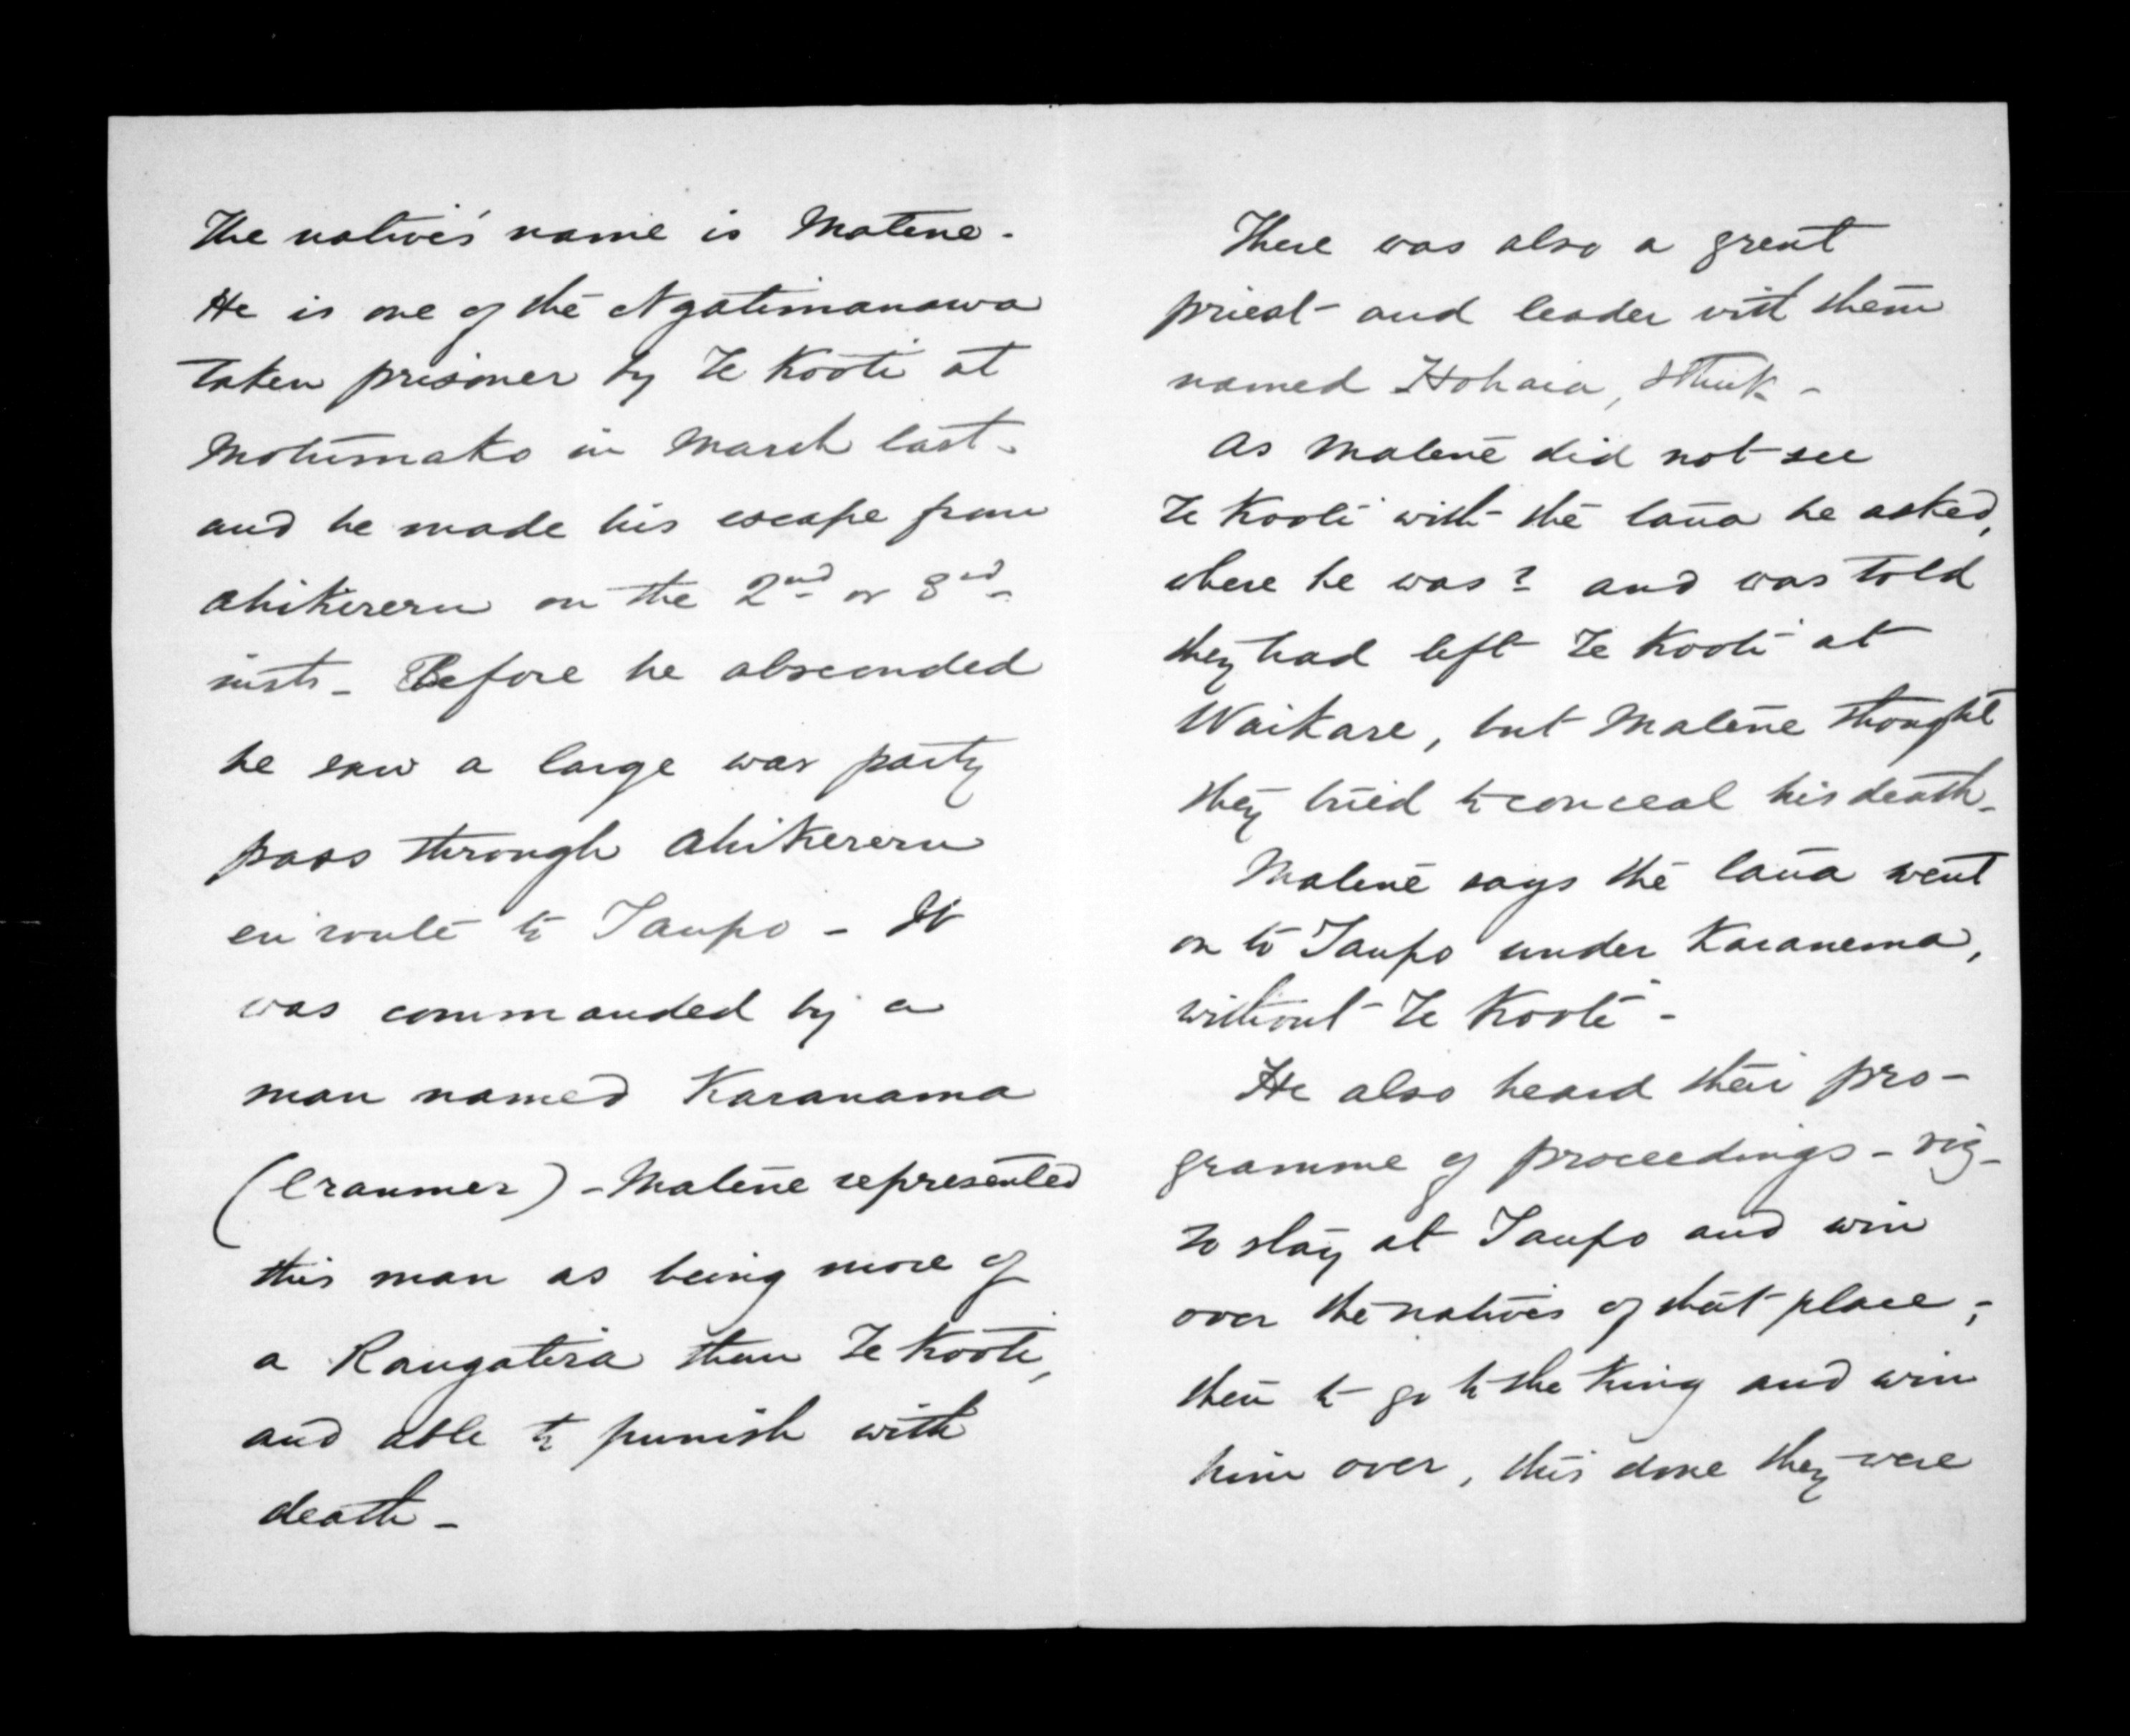 The native's name is Matene.
He is one of the Ngatimanawa
taken prisoner by Te Kooti at
Motumako in March last.
and he made his escape from
Ahikereru on the 2nd or 3rd
inst. Before he absconded
he saw a large war party
pass through Ahikereru
en route to Taupo - It
was commanded by a
man named Karanama
(Cranmer) - Matene represented
this man as being more of
a Rangatira than Te Kooti,
and able to punish with
death -
There was also a great
priest and leader with them
named Hohaia, I think -
As Matene did not see
Te Kooti with the taua he asked,
where he was? and was told
they had left Te Kooti at
Waikare, but Matene thought
they tried to conceal his death -
Matene says the taua went
on to Taupo under Karanema,
without Te Kooti -
He also heard their pro-
gramme of proceedings - viz -
to stay at Taupo and win
over the natives of that place;
then to go to the King and win
him over, this done they were